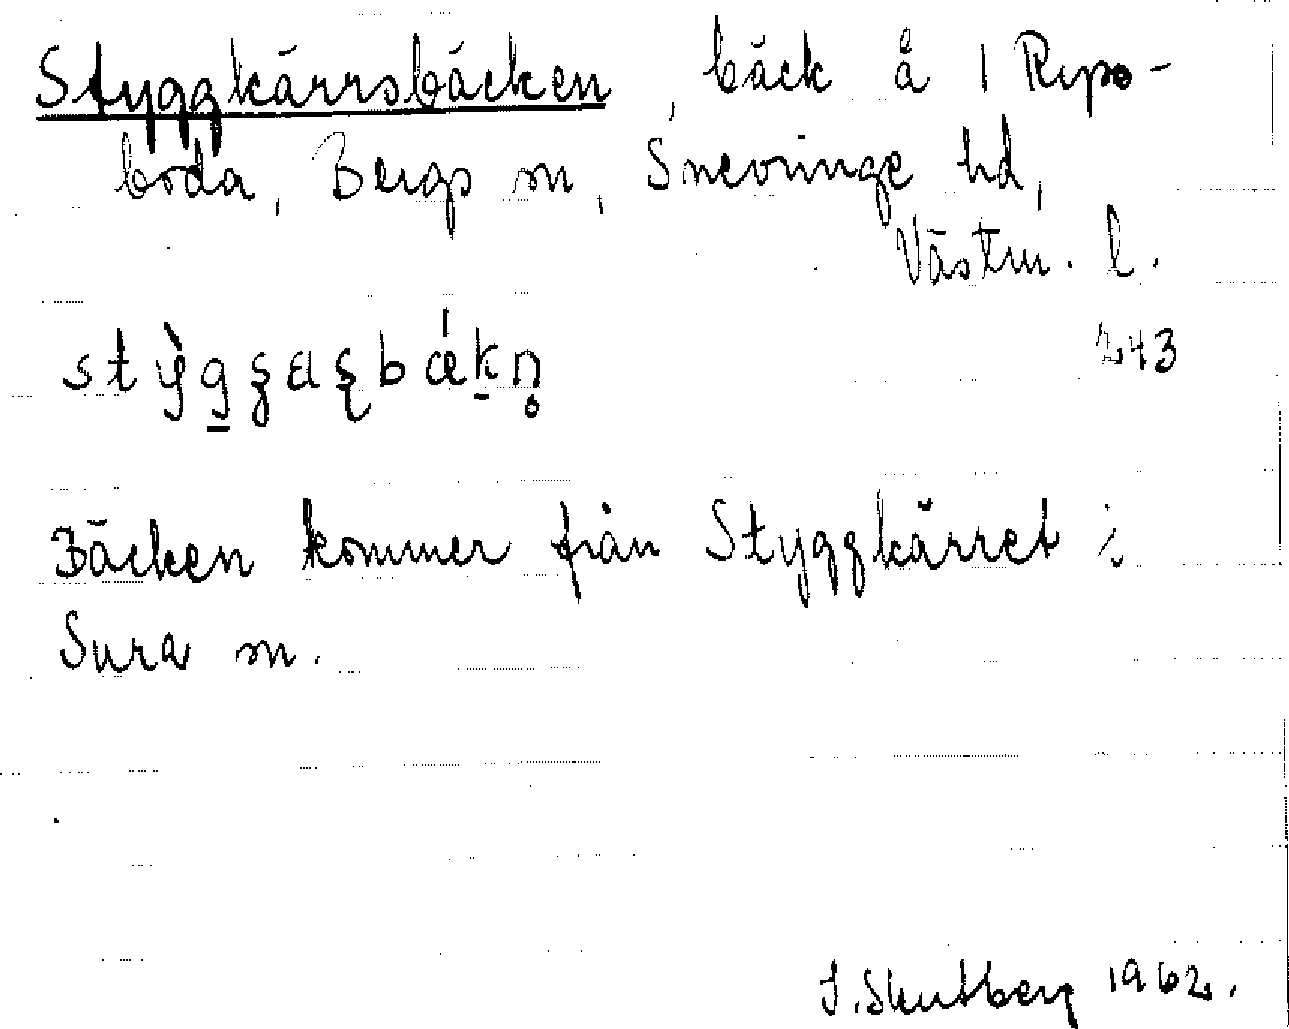 Styggkärrsbäcken, bäck å 1 Repo-
boda, Bergs sn, Snevringe hd,
Västm. l.
243
Bäcken kommer från Styggkärret i
Sura sn.
1962.